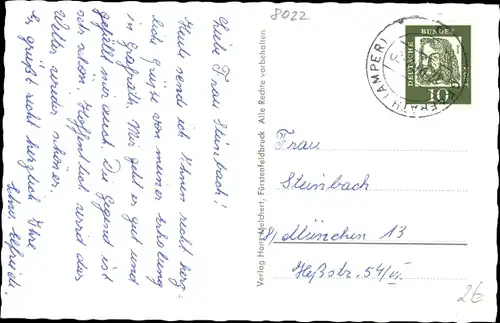 8022
Liebe Frau Steinbach!
Heute send ich Ihnen recht herz-
liche Grüße von meiner Erholung
in Grafrath. Mir geht es gut und
gefällt mir auch. Die Gegend ist
sehr schön. Hoffentlich wird das
Wetter wieder schöner.
Es grüßt recht herzlich Ihre
Elfriede.
Verlag Hans Melchert, Fürstenfeldbruck Alle Rechte vorbehalten
DEUTSCHE BUNDESPOST
10
RATH (AMPER)
Frau
Steinbach
8) München 13
Heßstr. 54/VI.
2€